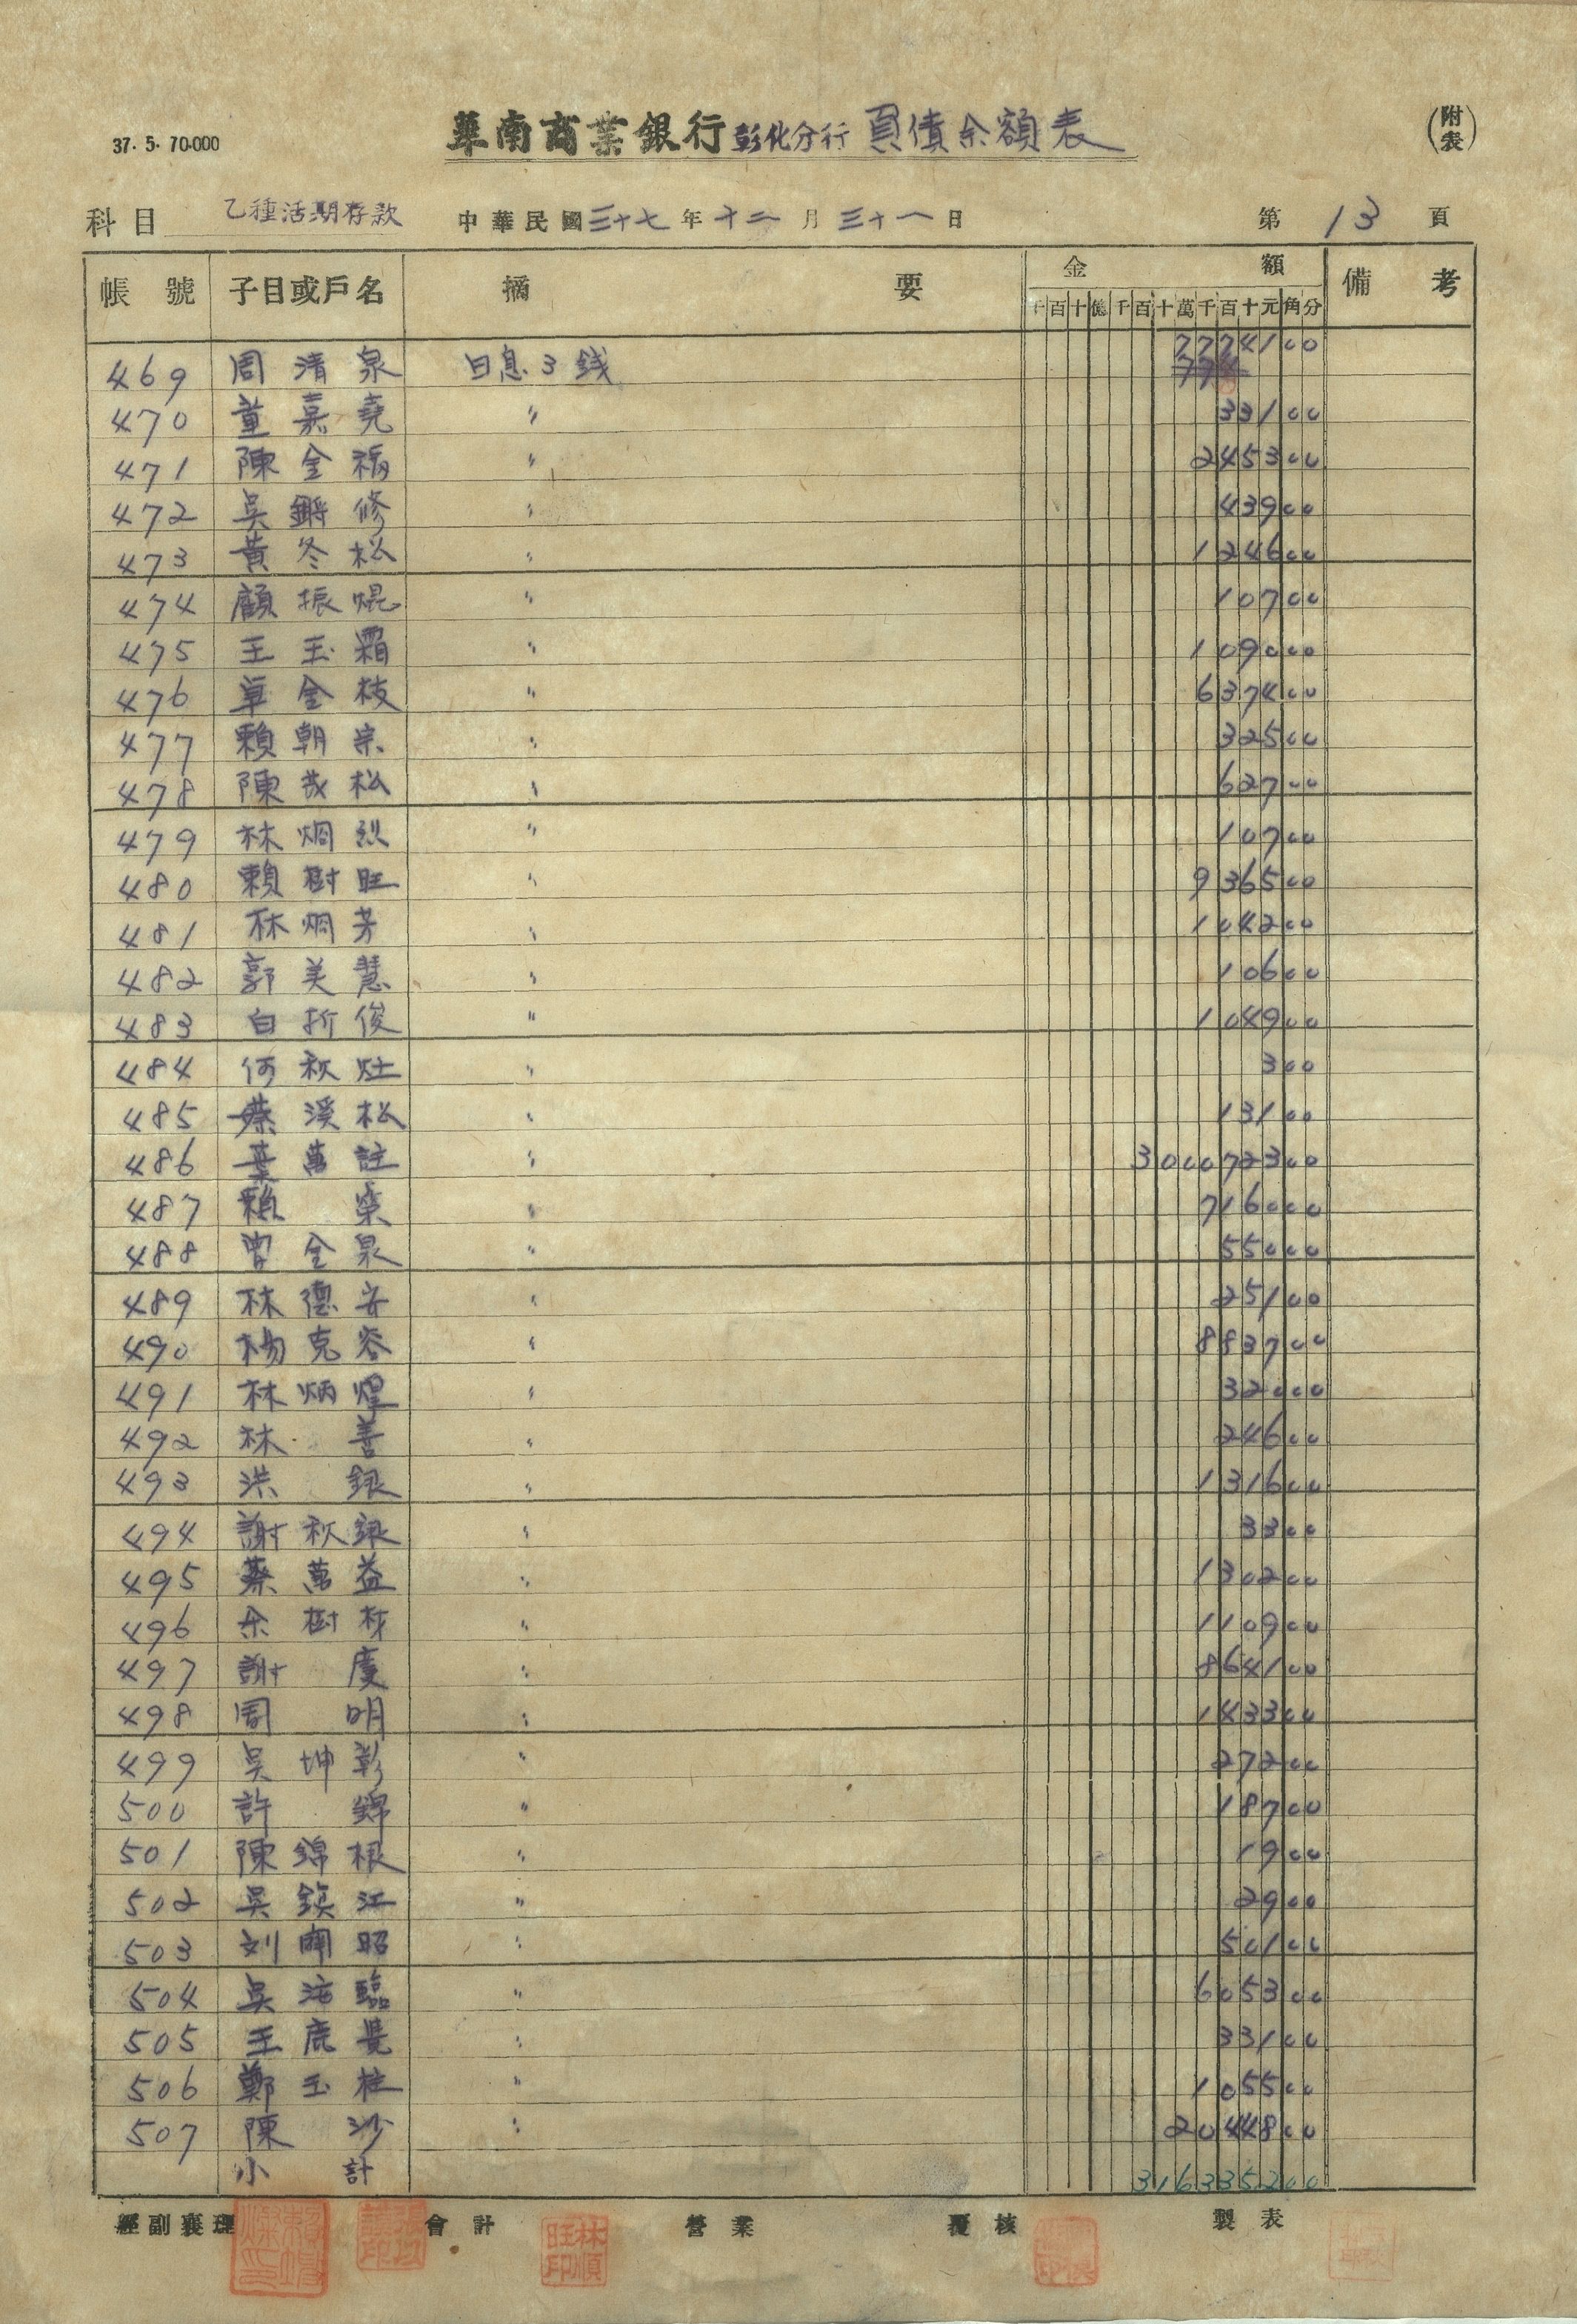 37. 5. 70.000
華南商業銀行彰化分行負債余額表
(附表)
科目 乙種活期存款 中華民國三十七年十二月三十一日 第13頁
帳號 子目或戶名 摘要 金額 備考
千百十億千百十萬千百十元角分
469 周清泉 日息3錢 77241 00
470 童嘉堯 〃 331 00
471 陳金福 〃 2453 00
472 吳鏘修 〃 439 00
473 黃冬松 〃 1246 00
474 顧振焜 〃 107 00
475 王玉霜 〃 1090 00
476 卓金枝 〃 6374 00
477 賴朝宗 〃 325 00
478 陳哉松 〃 627 00
479 林烱烈 〃 107 00
480 賴樹旺 〃 9365 00
481 林烱芳 〃 1042 00
482 郭美慧 〃 106 00
483 白折俊 〃 1049 00
484 何秋灶 〃 3 00
485 蔡溪松 〃 131 00
486 葉萬註 〃 3000723 00
487 賴榮 〃 7160 00
488 曾全泉 〃 550 00
489 林德安 〃 251 00
490 楊克容 〃 8837 00
491 林炳煌 〃 320 00
492 林善 〃 246 00
493 洪銀 〃 1316 00
494 謝秋銀 〃 33 00
495 蔡萬益 〃 1302 00
496 余樹林 〃 1109 00
497 謝慶 〃 8641 00
498 周明 〃 1433 00
499 吳坤彰 〃 272 00
500 許錦 〃 187 00
501 陳錦根 〃 19 00
502 吳鎮江 〃 29 00
503 刘開昭 〃 501 00
504 吳海臨 〃 6053 00
505 王鹿 〃 331 00
506 鄭玉柱 〃 1055 00
507 陳沙 〃 20448 00
小計 3163352 00
經副襄理 會計 營業 覆核 製表
林順旺印